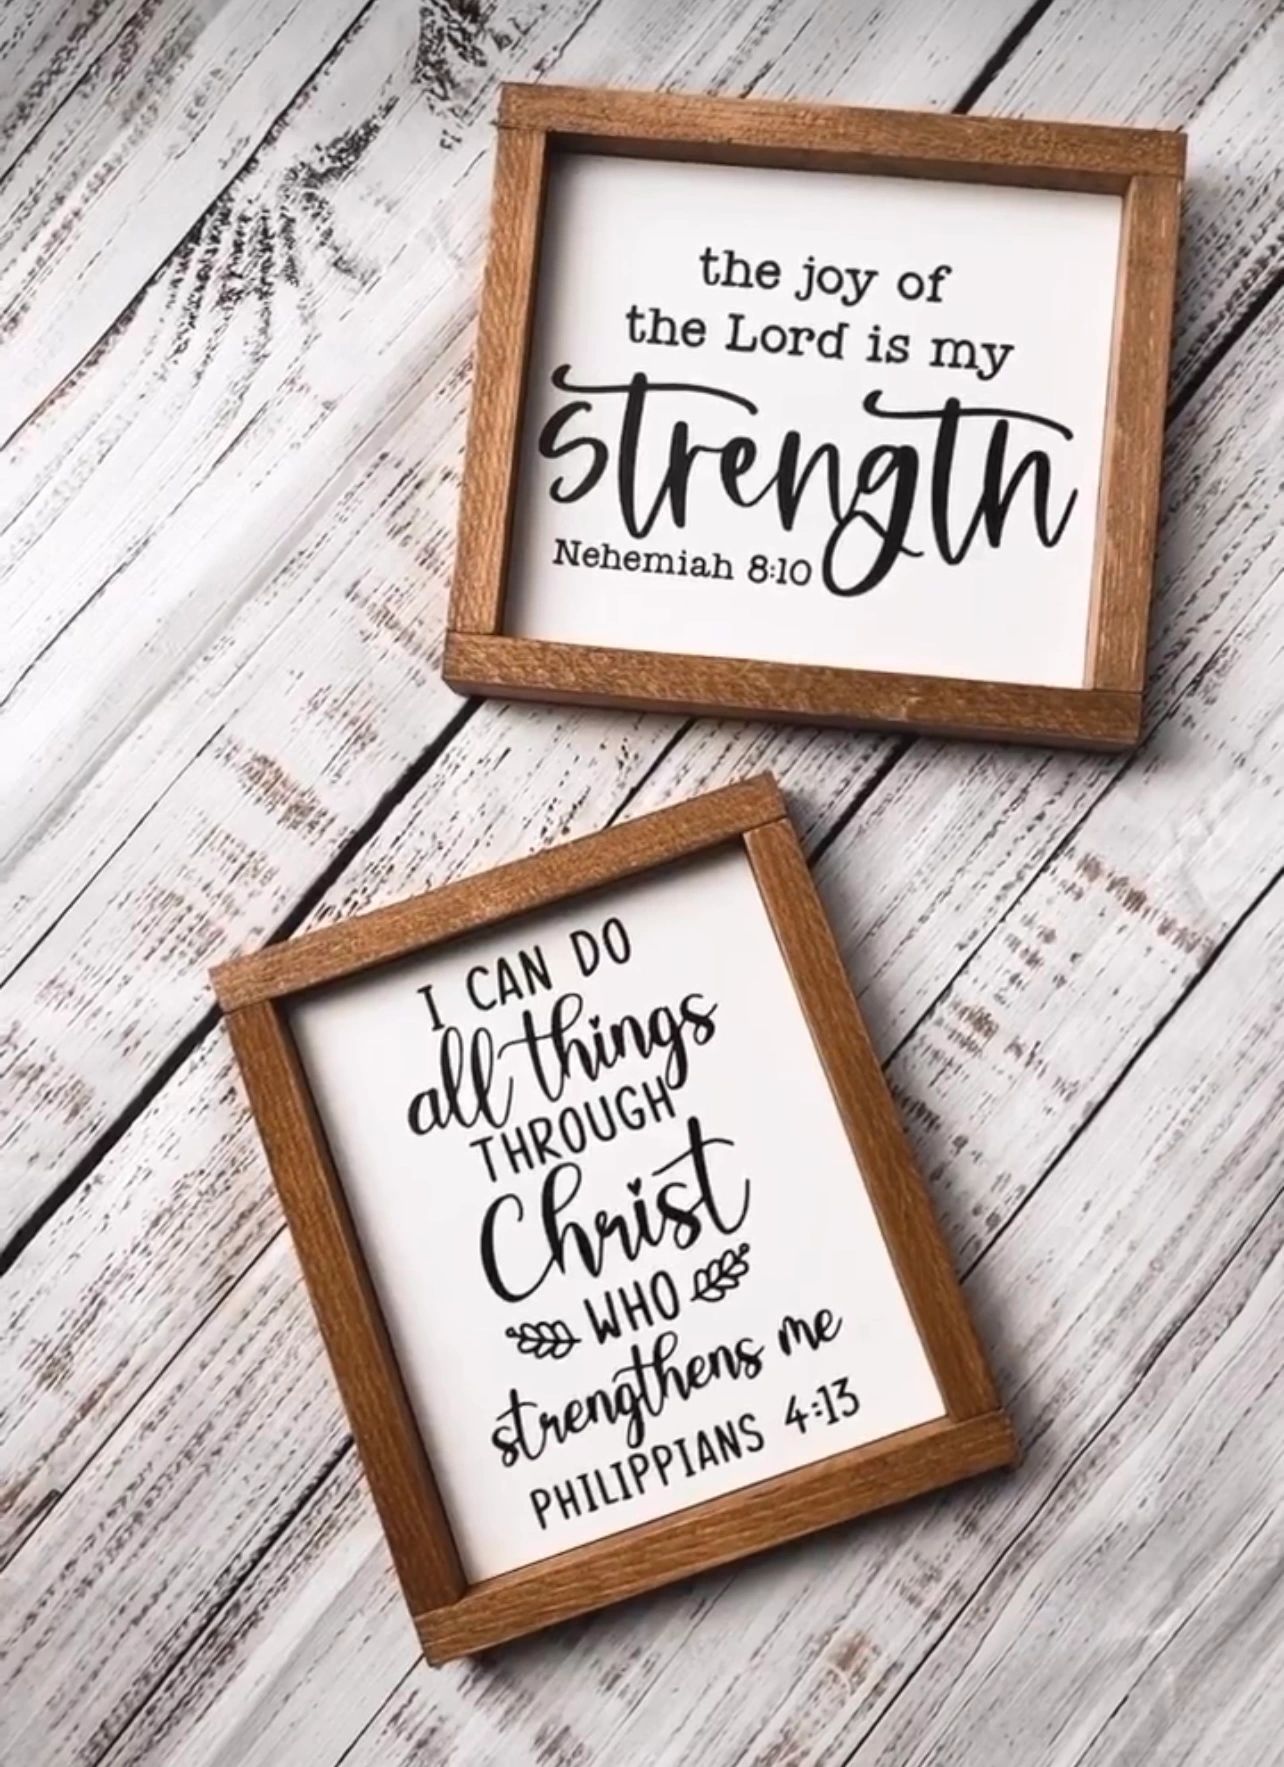 the joy of
the Lord is my
strength
Nehemiah 8:10
I CAN DO
all things
THROUGH
Christ
WHO
strengthens me
PHILIPPIANS 4:13